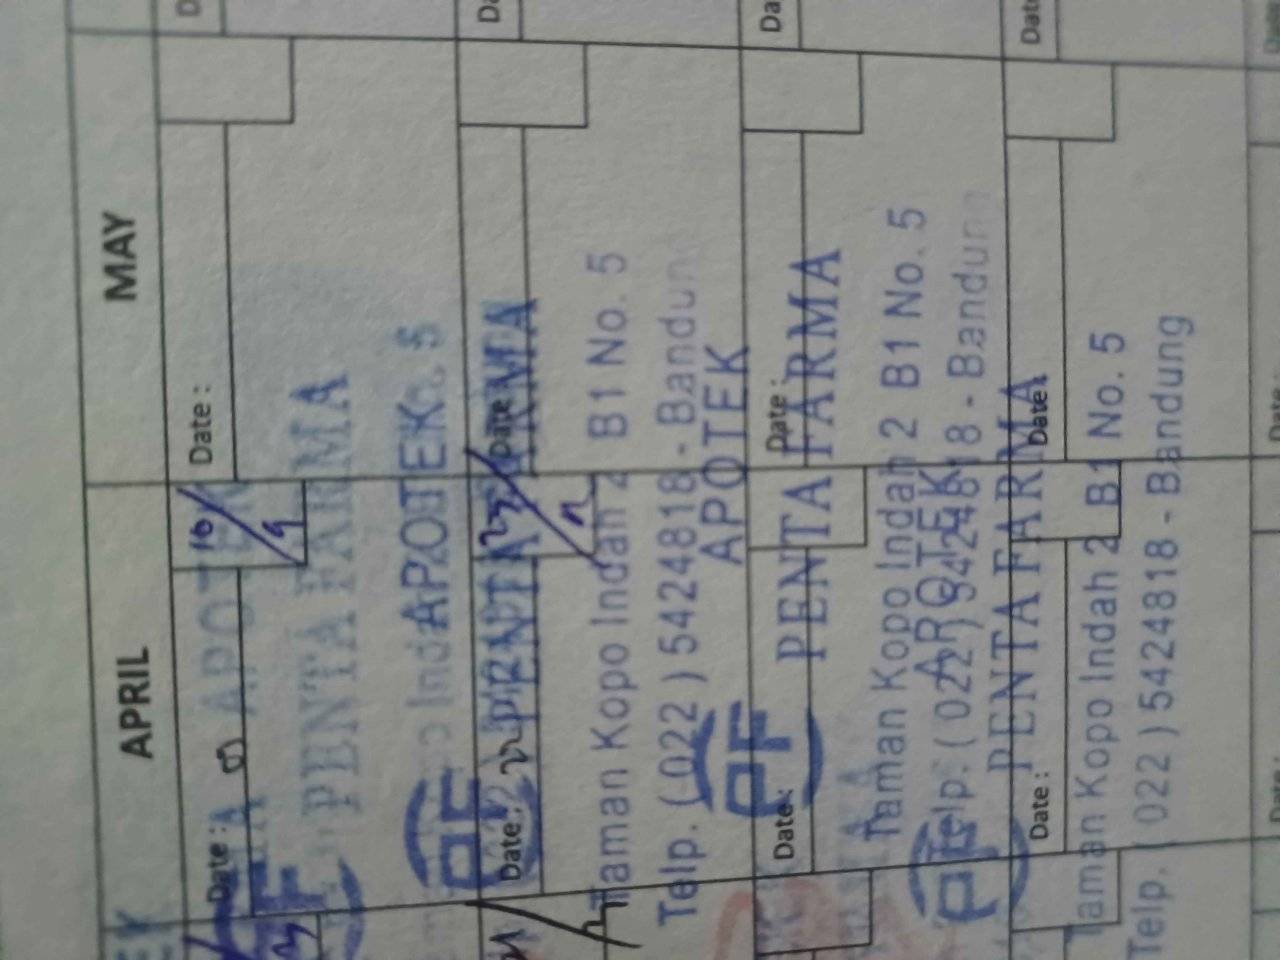 APRIL MAY
Date: 5 16/9 Date:
APOTEK
PENTA FARMA
APOTEK
Date: 22 Date:
PENTA FARMA
Taman Kopo Indah 2 B1 No. 5
Telp. ( 022 ) 5424818 - Bandun
APOTEK
PF
Date: Date:
PENTA FARMA
Taman Kopo Indah 2 B1 No. 5
APOTEK
Telp. ( 022 ) 5424818 - Bandun
PF
PENTA FARMA
Date: Date:
Taman Kopo Indah 2 B1 No. 5
Telp. ( 022 ) 5424818 - Bandung